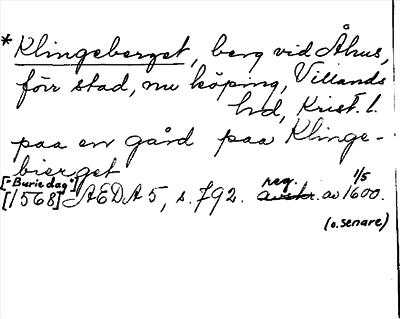 *Klingeberget, berg vid Åhus,
förr stad, nu köping, Villands
hd, Krist. l.
paa en gård paa Klinge-
bierget
["Buriedag"]
[1568] ÆDA 5, s. 792. reg. av 1/5 1600.
(o. senare)